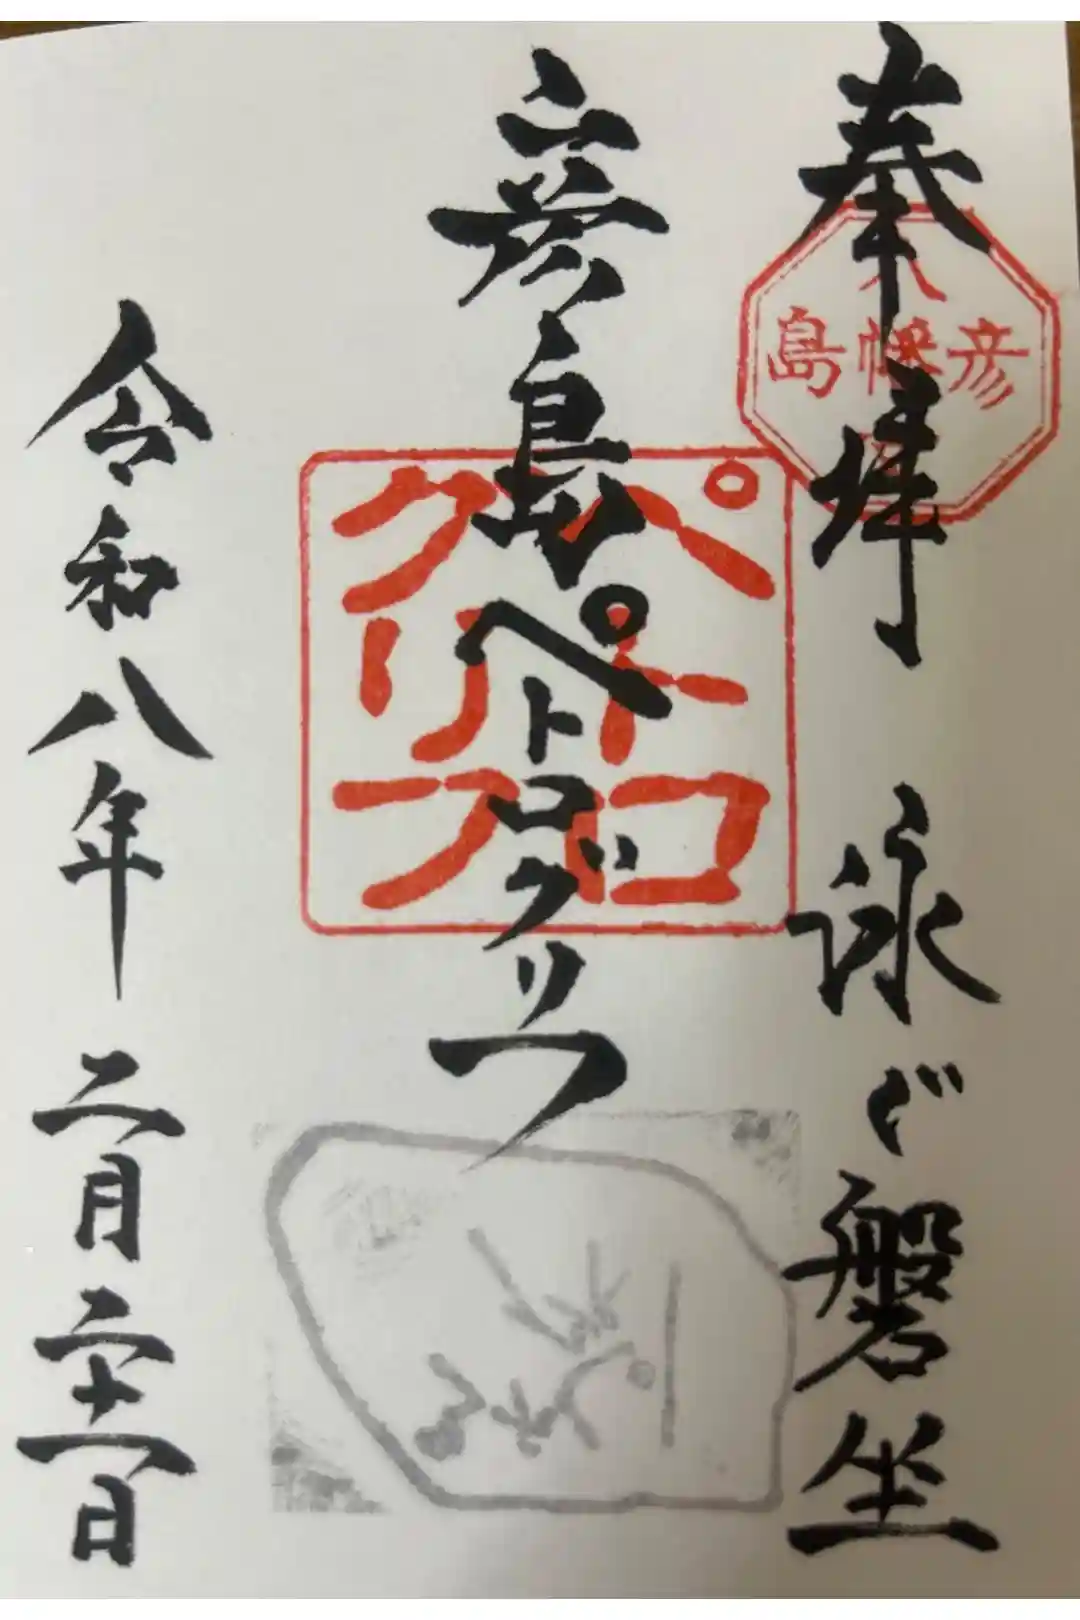 奉拝 泳ぐ磐坐
彦島
八幡
ペトロ
グリフ
彦島ペトログリフ
令和八年 二月二十一日